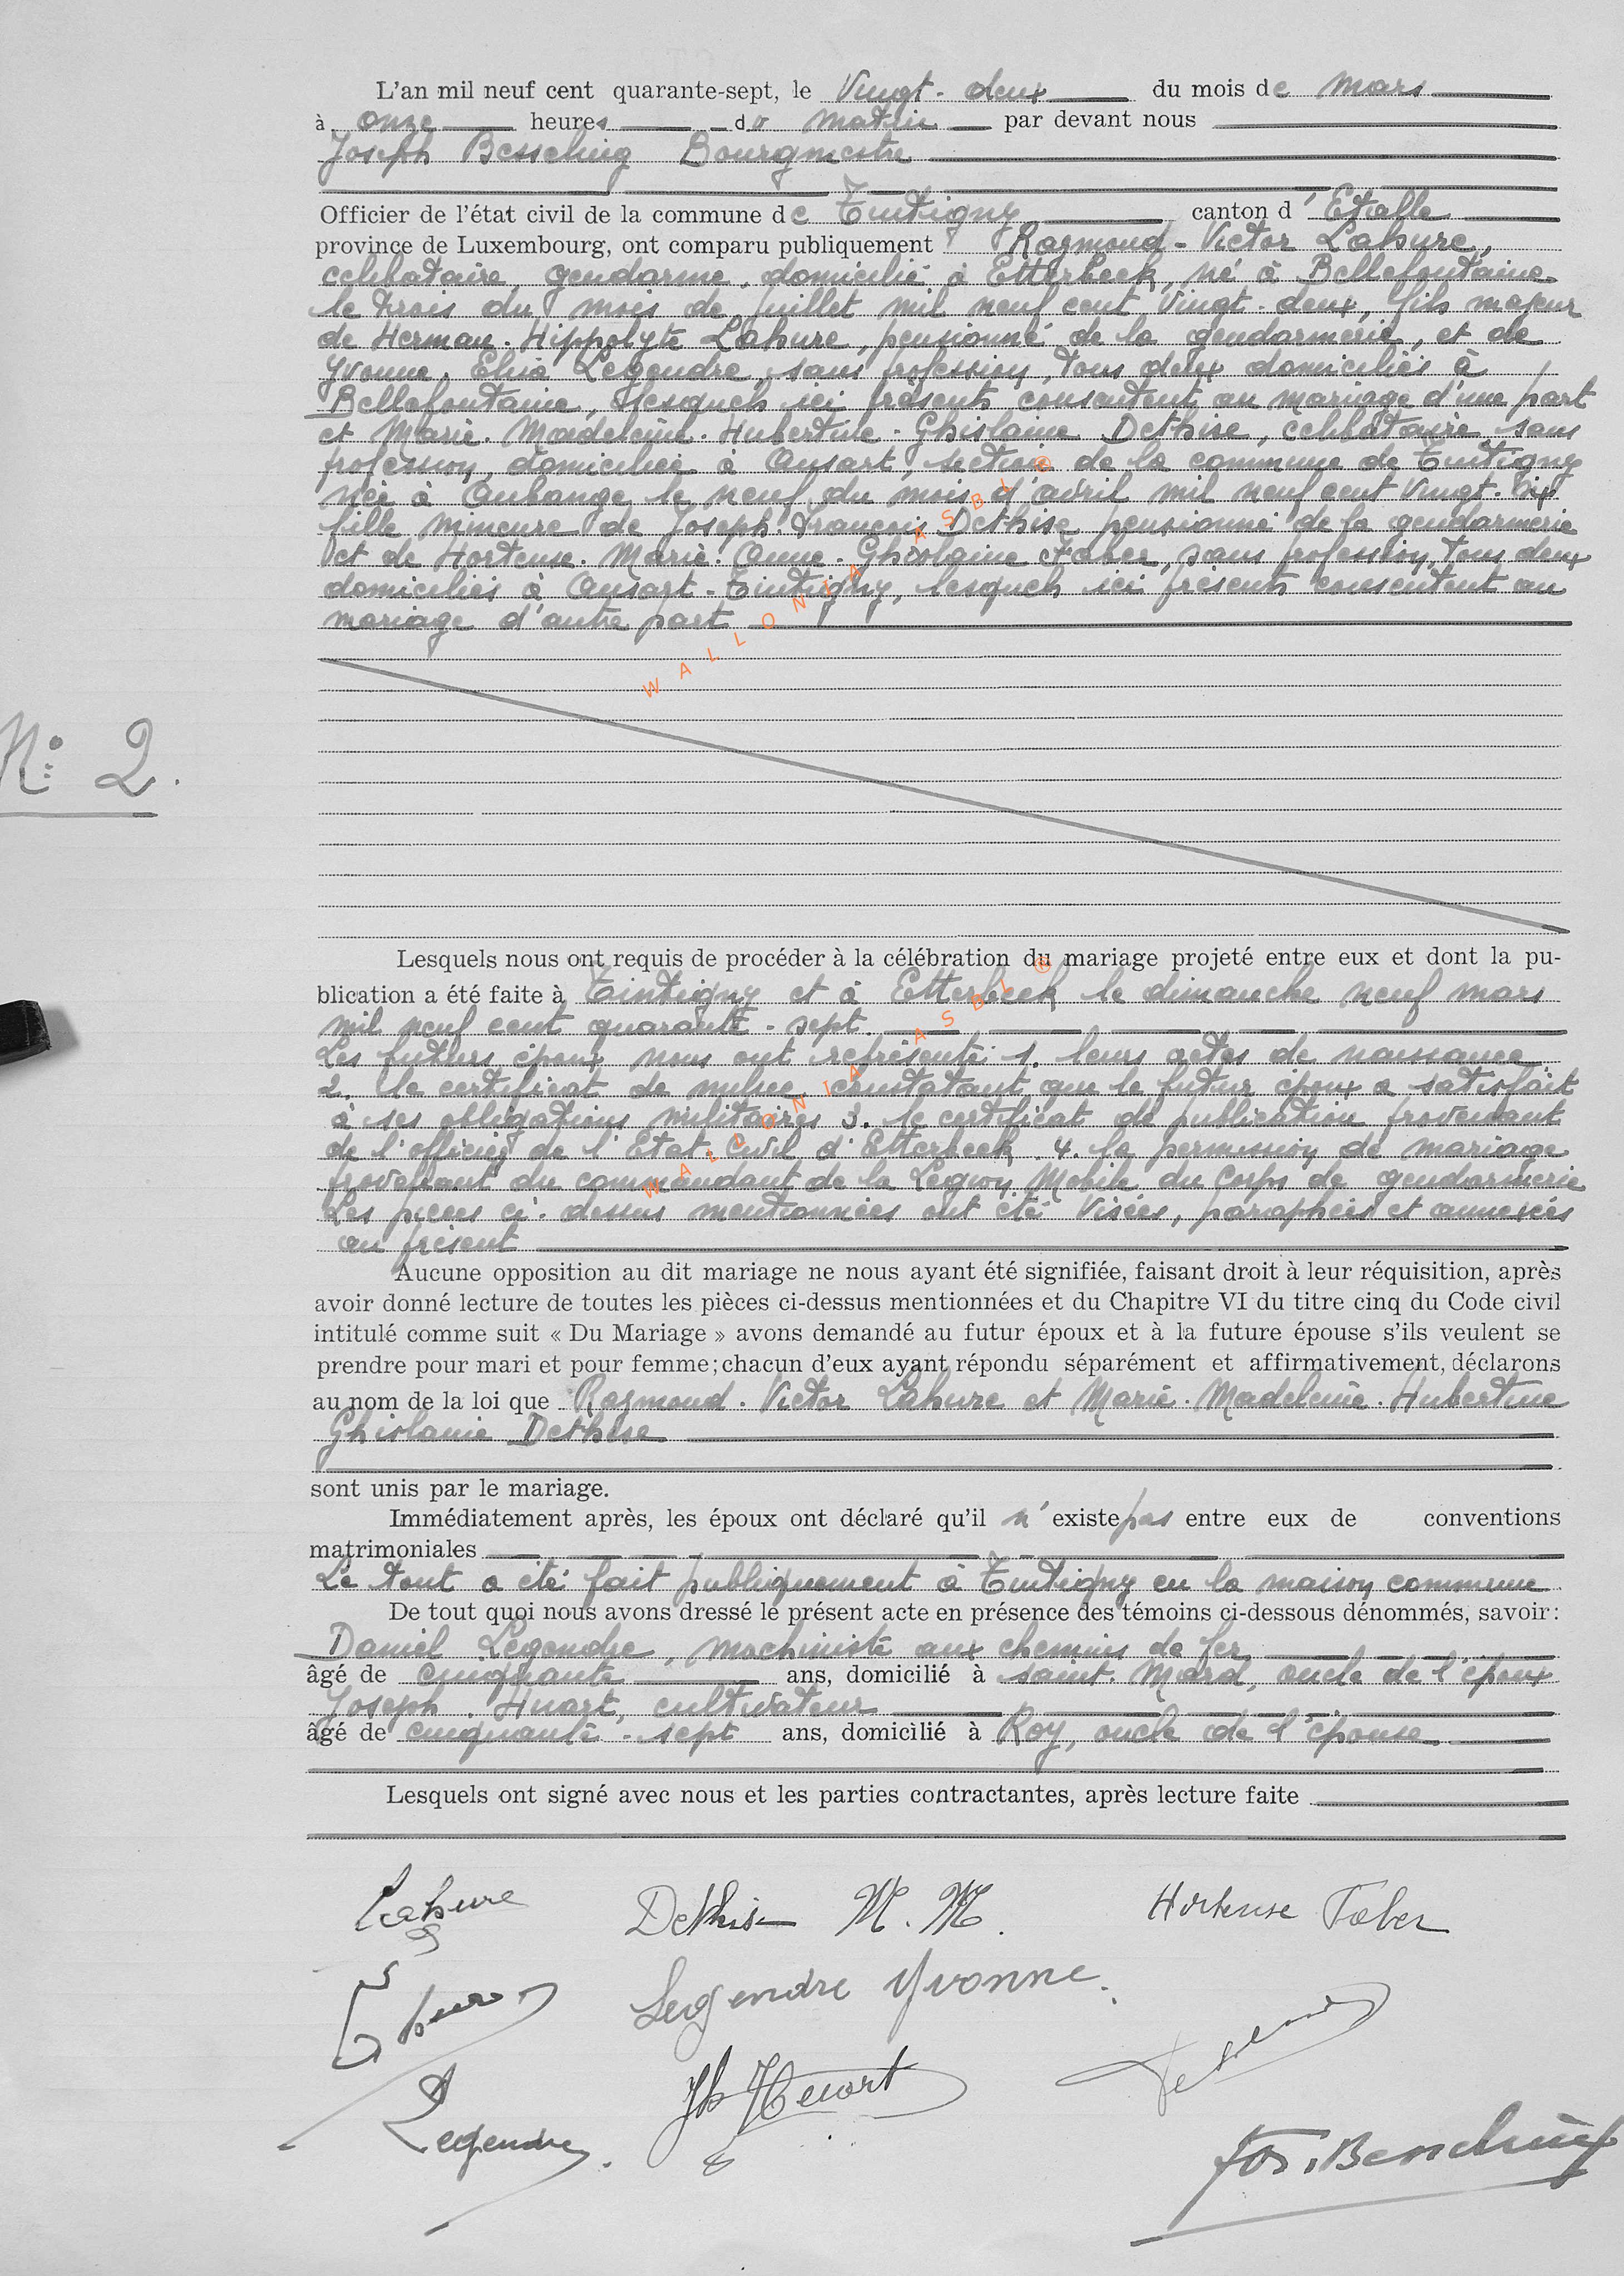 L'an mil neuf cent quarante-sept, le Vingt-deux du mois de mars
à onze heures du matin par devant nous
Joseph Besseling Bourgmestre
Officier de l'état civil de la commune de Tintigny canton d'Etalle
province de Luxembourg, ont comparu publiquement Raymond-Victor Lahure,
célibataire, gendarme, domicilié à Etterbeck, né à Bellefontaine
le trois du mois de juillet mil neuf cent vingt-deux, fils majeur
de Herman-Hippolyte Lahure, pensionné de la gendarmerie, et de
Yvonne-Elisa Legendre, sans profession, tous deux domiciliés à
Bellefontaine, lesquels ici présents consentent au mariage d'une part
et Marie-Madeleine-Hubertine-Ghislaine Dethise, célibataire, sans
profession, domiciliée à Ansart, section de la commune de Tintigny
née à Aubange le neuf du mois d'avril mil neuf cent vingt-six
fille mineure de Joseph-François Dethise pensionné de la gendarmerie
et de Hortense-Marie-Anne-Ghislaine Faber, sans profession, tous deux
domiciliés à Ansart-Tintigny, lesquels ici présents consentent au
mariage d'autre part
N° 2.
Lesquels nous ont requis de procéder à la célébration du mariage projeté entre eux et dont la pu-
blication a été faite à Tintigny et à Etterbeek le dimanche neuf mars
mil neuf cent quarante-sept.
Les futurs époux nous ont représenté 1. leurs actes de naissance
2. le certificat de milice constatant que le futur époux a satisfait
à ses obligations militaires 3. le certificat de publication provenant
de l'officier de l'Etat-Civil d'Etterbeek. 4. la permission de mariage
provenant du commandant de la Légion Mobile du Corps de gendarmerie
Les pièces ci-dessus mentionnées ont été visées, paraphées et annexées
au présent
Aucune opposition au dit mariage ne nous ayant été signifiée, faisant droit à leur réquisition, après
avoir donné lecture de toutes les pièces ci-dessus mentionnées et du Chapitre VI du titre cinq du Code civil
intitulé comme suit « Du Mariage » avons demandé au futur époux et à la future épouse s'ils veulent se
prendre pour mari et pour femme; chacun d'eux ayant répondu séparément et affirmativement, déclarons
au nom de la loi que Raymond-Victor Lahure et Marie-Madeleine-Hubertine
Ghislaine Dethise
sont unis par le mariage.
Immédiatement après, les époux ont déclaré qu'il n'existe pas entre eux de conventions
matrimoniales
Le tout a été fait publiquement à Tintigny en la maison commune
De tout quoi nous avons dressé le présent acte en présence des témoins ci-dessous dénommés, savoir:
Daniel Legendre, machiniste aux chemins de fer
âgé de cinquante ans, domicilié à Saint-Mard, oncle de l'époux
Joseph Huart, cultivateur
âgé de cinquante-sept ans, domicilié à Roy, oncle de l'épouse
Lesquels ont signé avec nous et les parties contractantes, après lecture faite
Lahure Dethise M. M. Hortense Faber
Legendre Yvonne.
Jh Huart
Legendre
Jos. Besseling
WALLONIA ASBL ®
WALLONIA ASBL ®